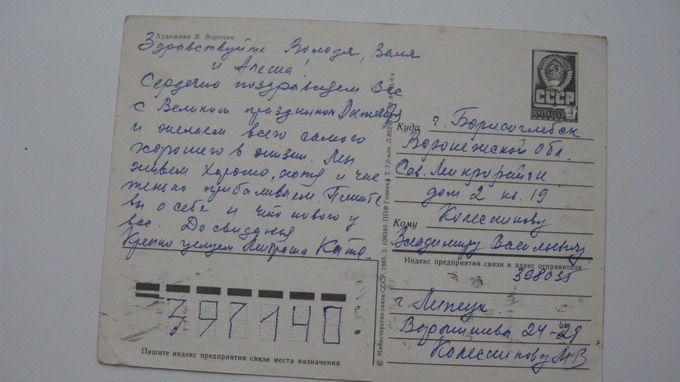 Художник В. Воронин
Здравствуйте Володя, Валя
и Алеся!
Сердечно поздравляем Вас
с Великим праздником Октября
и желаем всего самого
хорошего в жизни. Мы
живем хорошо, хотя и
прибаливаем. Пишите
вы о себе и что нового у
вас. До свидания
Крепко целуем Катя.
СССР
4
Куда г. Борисоглебск
Воронежской Обл.
Сев. Микрорайон
дом 2 кв. 19
Кому Колесникову
Владимиру Васильевичу
Индекс предприятия связи и адрес отправителя
398055
г Липецк
24-29
Колесникову
397140
Пишите индекс предприятия связи места назначения
© Министерство связи СССР, 1985. З. 108340. ППФ Гознака. Т. 7,0 млн.